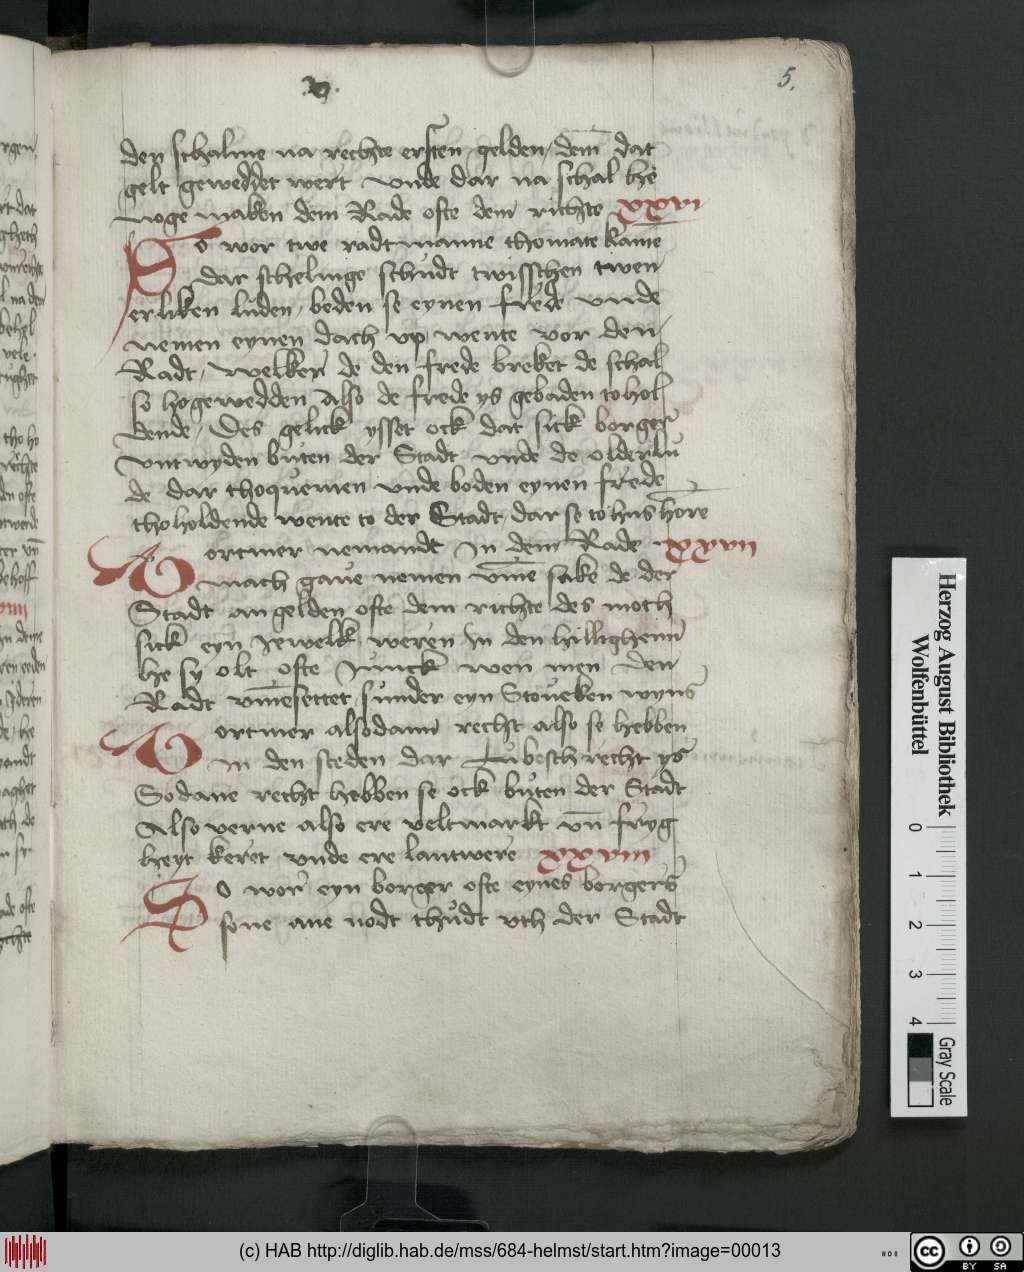 .v.
5.
den schalme na rechte ersten gelden, dem̄ dat
gelt geweddet wert vnde dar na schal he
noge maken dem Rade ofte dem richte xxvi
So wor twe radtmanne thomate kame
dar schelinge schůdt twisschen twen
erliken lůden, beden se eynen frede vnde
nemen eynen dach vp wente vor den
Radt, welker de den frede breket de schal
so hogewedden also de frede ys gebaden to hol
dende, Des gelick ysset ock dat sick borger
vntwyden bůten der Stadt vnde de olderlů
de dar thoquemen vnde boden eynen frede
tho holdende wente to der Stadt dar se to hus hore
Vortmer nemandt In dem Rade xxvii
mach gaue nemen vm̄e sake de der
Stadt angelden ofte dem richte des moth
sick eyn Jewelk weren In den hillighenn
he sy olt ofte Junck wen men den
Radt vm̄esettet sunder eyn Stoueken wyns
Vortmer alsodann recht also se hebben
In den steden dar Lubesch recht ys
Sodane recht hebben se ock bůten der Stadt
Also verne also ere veltmarkt vn̄ fryg
heyt keret vnde ere lantwere xxviii
So wor eyn borger ofte eynes borgers
sone ane nodt thůdt vth der Stadt
Herzog August Bibliothek
Wolfenbüttel
0 1 2 3 4
Gray Scale
(c) HAB http://diglib.hab.de/mss/684-helmst/start.htm?image=00013
cc BY SA